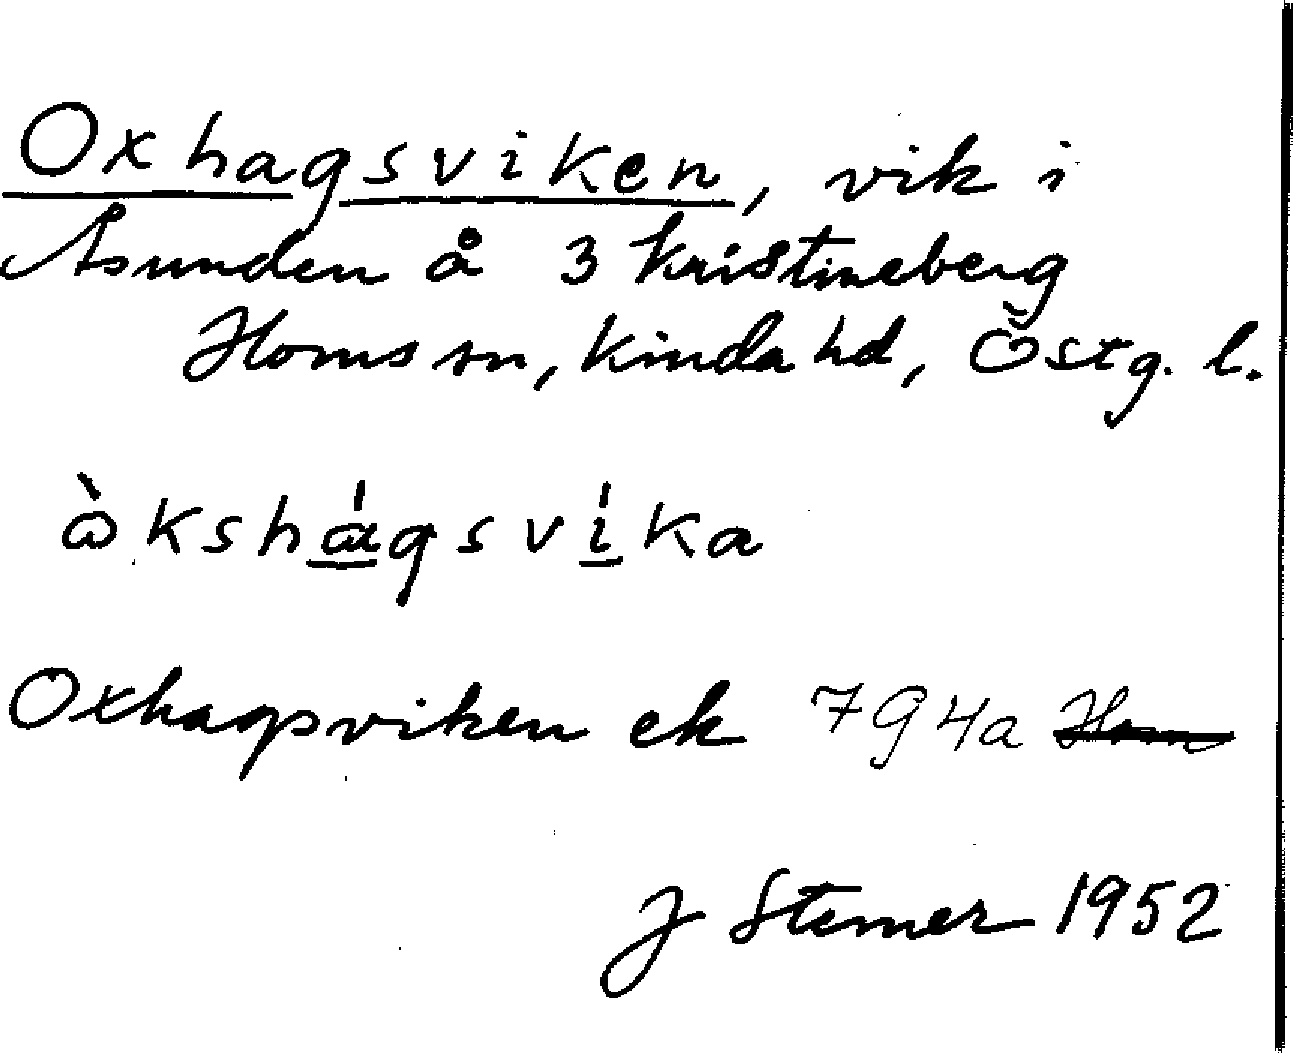 Oxhagsviken, vik i
Åsunden å 3 Kristineberg
Horns sn, Kinda hd, Östg. l.
ɷ̀kshá̱gsví̱ka
Oxhagsviken ek 794a
J Stemer 1952